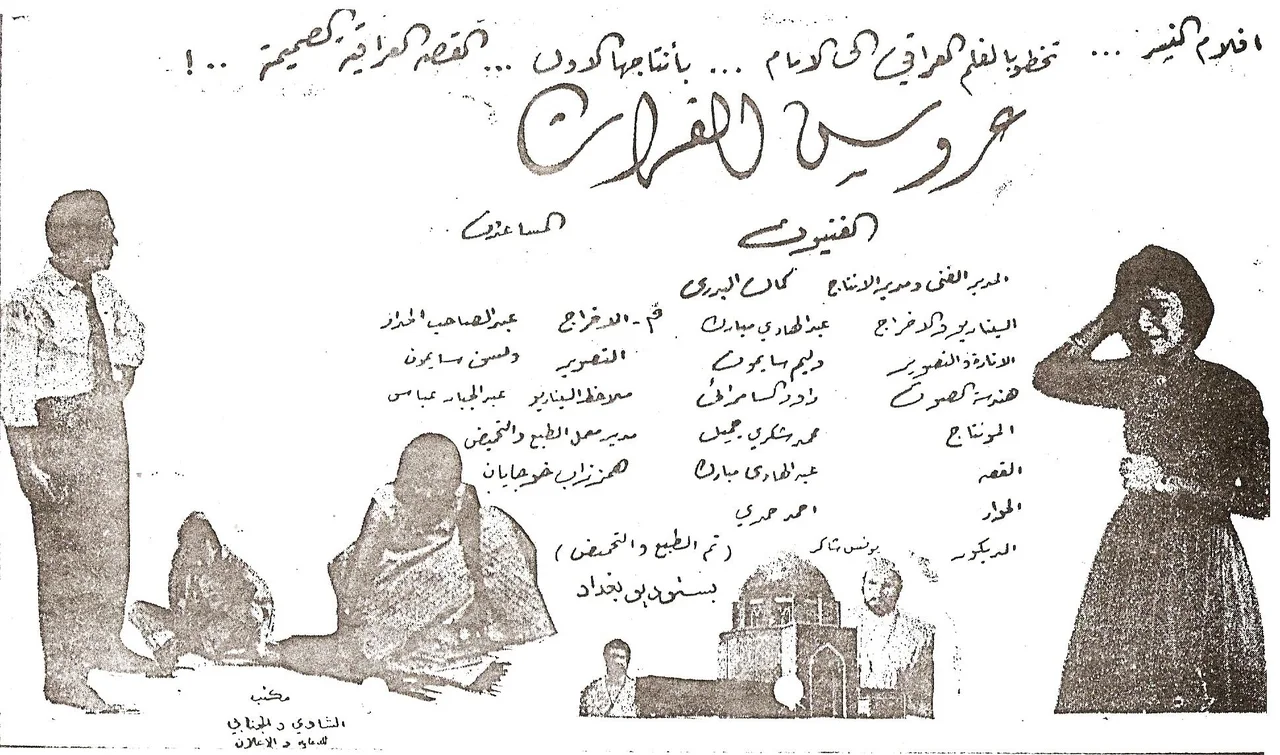 افلام النسر ... تخطو بالفلم العراقي الى الامام ... بأنتاجها الاول ... القصة العراقية الصميمة ..!
عروس الفرات
الفنيون
المدير الفني ومدير الانتاج كمال البدري
السيناريو والاخراج عبد الهادي مبارك
الانارة والتصوير وليم سايمون
هندسة الصوت داود السامرائي
المونتاج محمد شكري جميل
القصه عبد الهادي مبارك
الحوار احمد حمدي
الديكور يونس شاكر
المساعدون
م - الاخراج عبد الصاحب الحداد
التصوير ولسن سايمون
ملاحظ السيناريو عبد الجبار عباس
مدير معمل الطبع والتحميض
خوجايان
(تم الطبع والتحميض)
بستوديو بغداد
مكتب
الشاوي و الجنابي
للدعاية و الاعلان